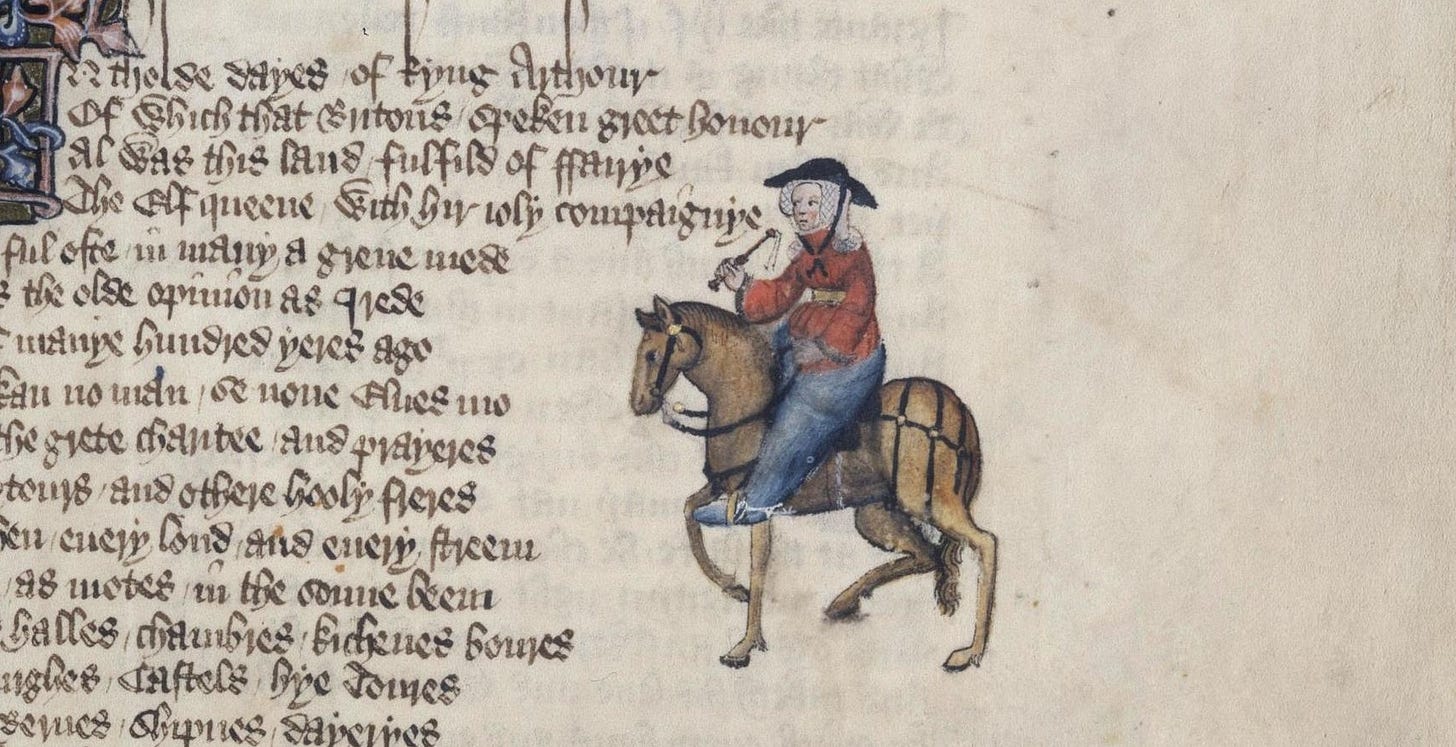 N tholde dayes / of kyng Arthour
Of which that Britons / speken greet honour
Al was this land / fulfild of ffairye
The Elf queene / with hir ioly compaignye
ful ofte / in many a grene mede
the olde opinion as I rede
manye hundred yeres ago
kan no man / se none Elues mo
the grete charitee / and prayeres
tours / and othere hooly freres
euery lond / and euery streem
as motes / in the sonne beem
halles / chambres / kichenes boures
ughes / Castels / hye Toures
bernes / Shipnes / dayeryes